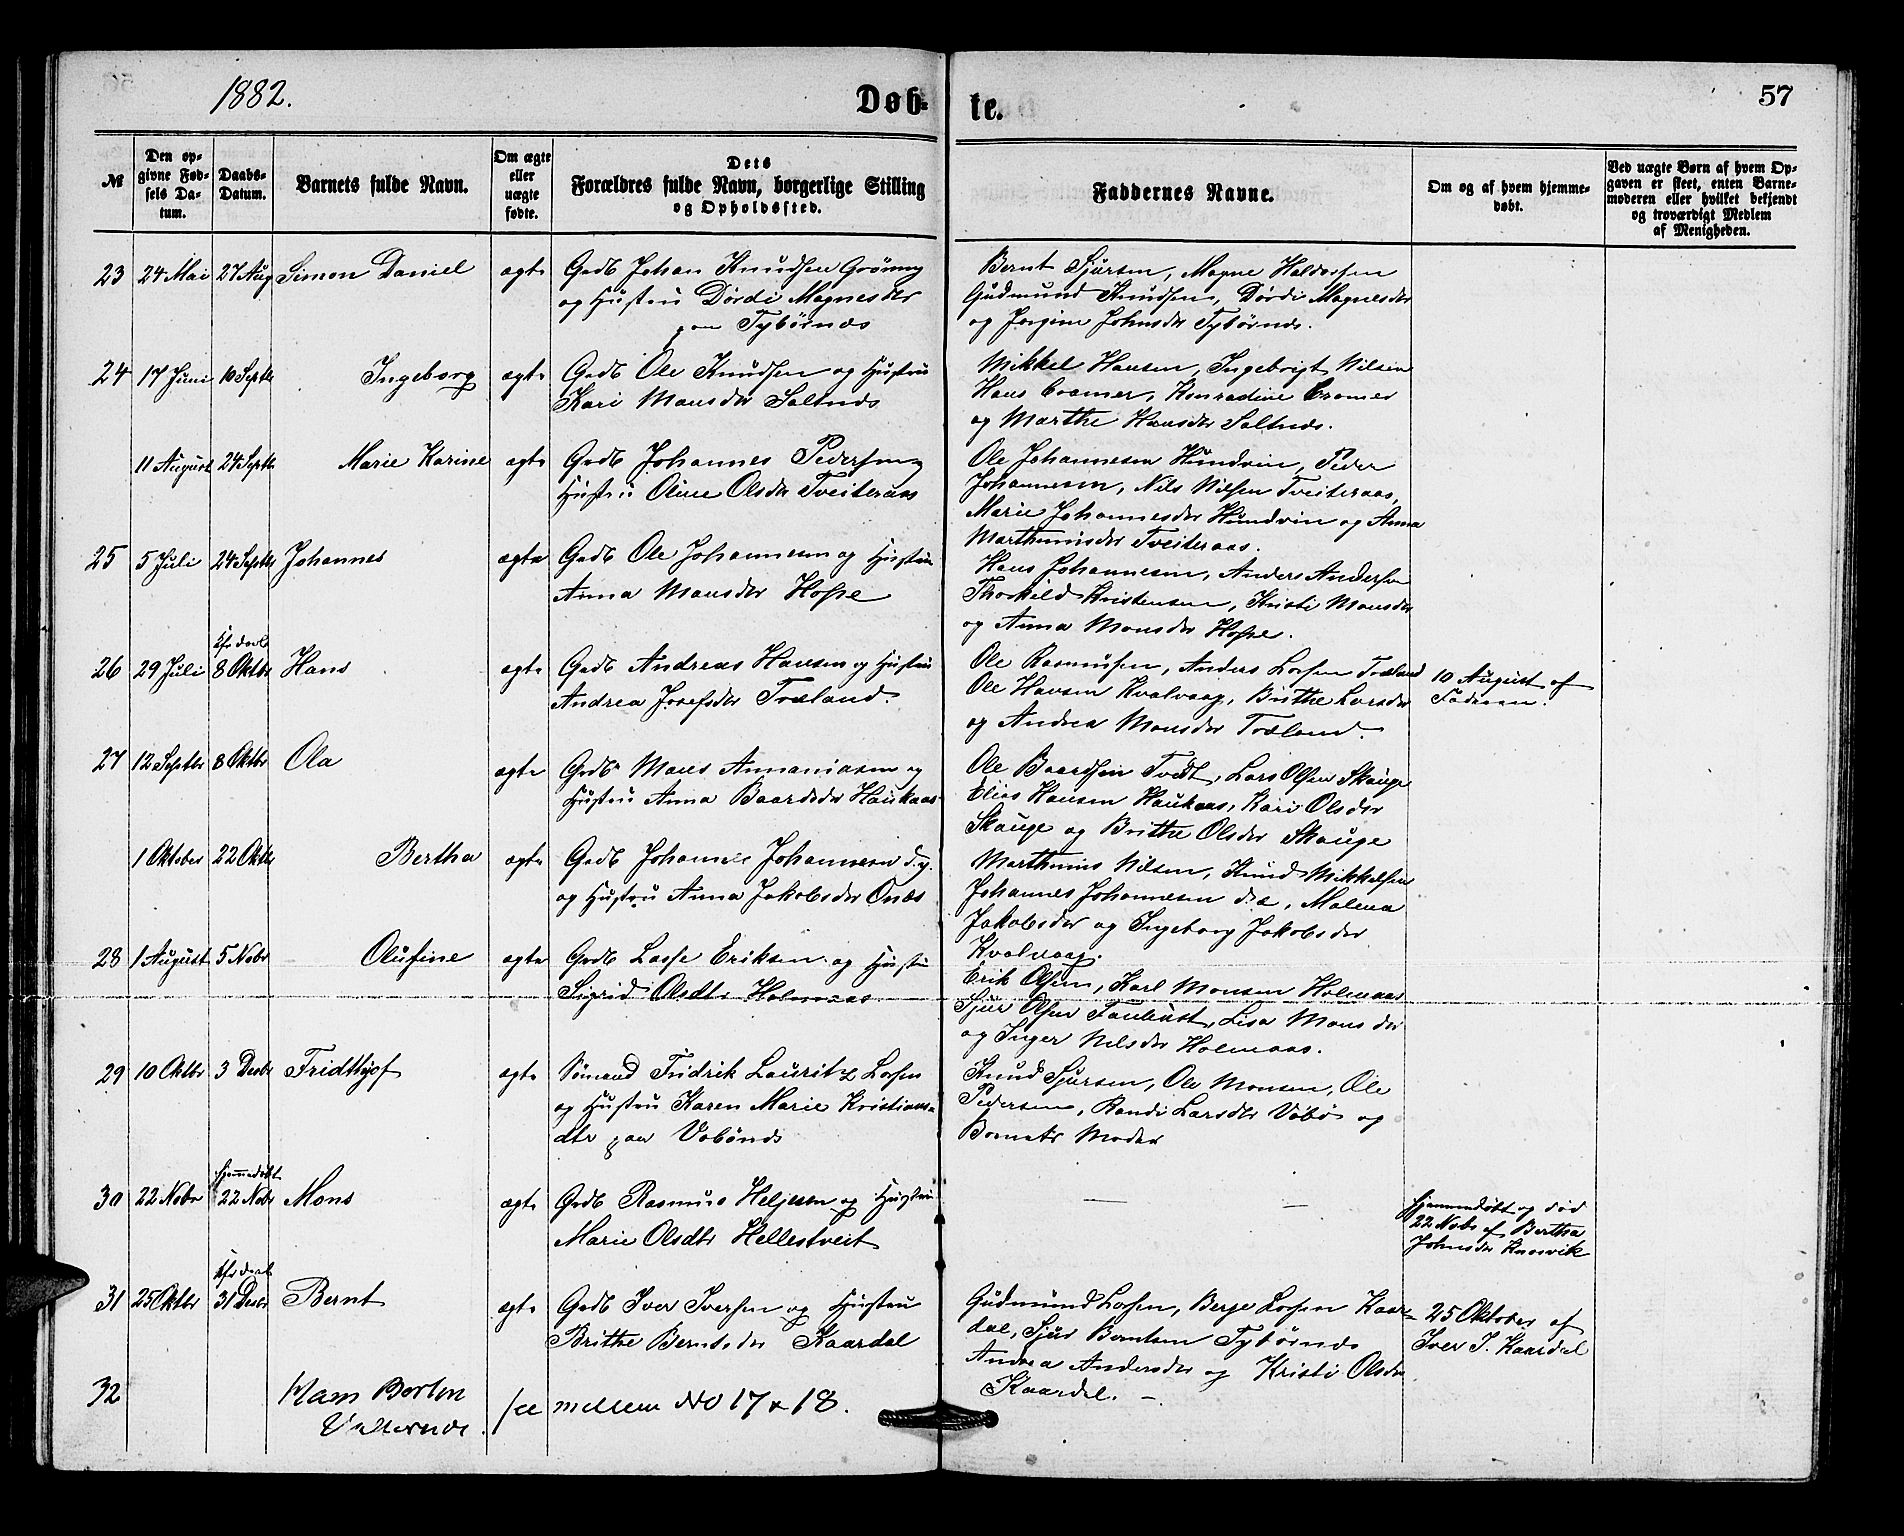 1882.
Døb-
te.
57
№
Den op-
givne Fød-
sels Da-
tum.
Daabs-
Datum.
Barnets fulde Navn.
Om ægte
eller
uægte
fødte.
Dets
Forældres fulde Navn, borgerlige Stilling
og Opholdssted.
Faddernes Navne.
Om og af hvem hjemme-
døbt.
Ved uægte Børn af hvem Op-
gaven er skeet, enten Barne-
moderen eller hvilket bekjendt
og troværdigt Medlem
af Menigheden.
23 24 Mai 27 Aug Simon Daniel ægte Gadb Johan Knudsen Grønning
og Hustru Dørdi Magnesdtr
paa Tybørnæs
Bernt Sjursen, Magne Haldorsen
Gudmund Knudsen, Dørdi Magnesdtr
og Jorgine Johnsdtr Tybørnæs.
24 17 Juni 10 Septbr Ingeborg ægte Gadb Ole Knudsen og Hustru
Kari Monsdtr Saltnæs
Mikkel Hansen, Ingebrigt Nilsen
Hans Cramer, Konradine Cramer
og Marthe Hansdtr Saltnæs.
11 August 24 Septbr Marie Karine ægte Gadb Johannes Pedersen og
Hustru Oline Olsdtr Tveiteraas
Ole Johannesen Hundvin, Peder
Johannesen, Nils Nilsen Tveiteraas,
Marie Johannesdtr Hundvin og Anna
Marthinusdtr Tveiteraas.
25 5 Juli 24 Septbr Johannes ægte Gadb Ole Johannesen og Hustru
Anna Monsdtr Hope
Hans Johannesen, Anders Andersen
Thorkild Kristensen, Kristi Monsdtr
og Anna Monsdtr Hope.
26 29 Juli 8 Oktbr Hans ægte Gadb Andreas Hansen og Hustru
Andrea Josefsdtr Træland.
Ole Rasmussen, Anders Larsen Træland
Ole Hansen Kvalvaag, Brithe Larsdtr
og Andrea Monsdtr Træland.
10 August af
Faderen.
27 12 Septbr 8 Oktbr Ola ægte Gadb Mons Annaniasen og
Hustru Anna Baardsdtr Haukaas
Ole Baardsen Tvedt, Lars Olsen Skauge
Elias Hansen Haukaas, Kari Olsdtr
Skauge og Brithe Olsdtr Skauge
1 Oktober 22 Oktbr Bertha ægte Gadb Johannes Johannesen d.y.
og Hustru Anna Jakobsdtr Onæs
Marthinus Nilsen, Knud Mikkelsen
Johannes Johannesen d.æ, Malena
Jakobsdtr og Ingeborg Jakobsdtr
Kvalvaag.
28 1 August 5 Nobr Olufine ægte Gadb Lasse Eriksen og Hustru
Sigrid Olsdtr Holmaas
Erik Olsen, Karl Monsen Holmaas
Sjur Olsen, Lisa Monsdtr
og Inger Nilsdtr Holmaas.
29 10 Oktbr 3 Decbr Fridthjof ægte Sømand Fridrik Lauritz Larsen
og Hustru Karen Marie Kristians-
dtr paa Vabønæs
Knud Sjursen, Ole Monsen, Ole
Pedersen, Randi Larsdtr Vabø og
Barnets Moder
30 22 Nobr hjemmedøbt 22 Nobr Mons ægte Gadb Rasmus Heljesen og Hustru
Marie Olsdtr Hellestveit
— —
hjemmedøbt og død
22 Nobr af Bertha
Johnsdtr Knarvik
31 25 Oktbr 31 Decbr Bernt ægte Gadb Iver Iversen og Hustru
Brithe Berntsdtr Kaardal
Gudmund Larsen, Berge Larsen Kaar-
dal, Sjur Berntsen Tybørnæs
Andrea Andersdtr og Kristi Olsdtr
Kaardal. —
25 Oktober af
Iver I. Kaardal
32
see mellem No 17 & 18.